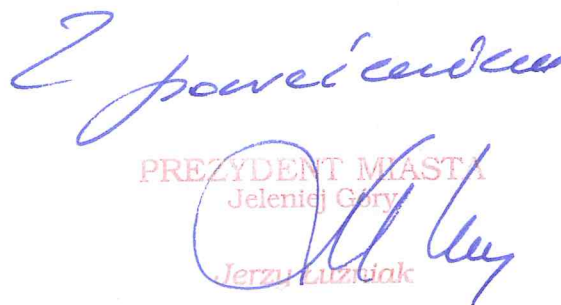 Z poważaniem
PREZYDENT MIASTA
Jeleniej Góry
Jerzy Łużniak